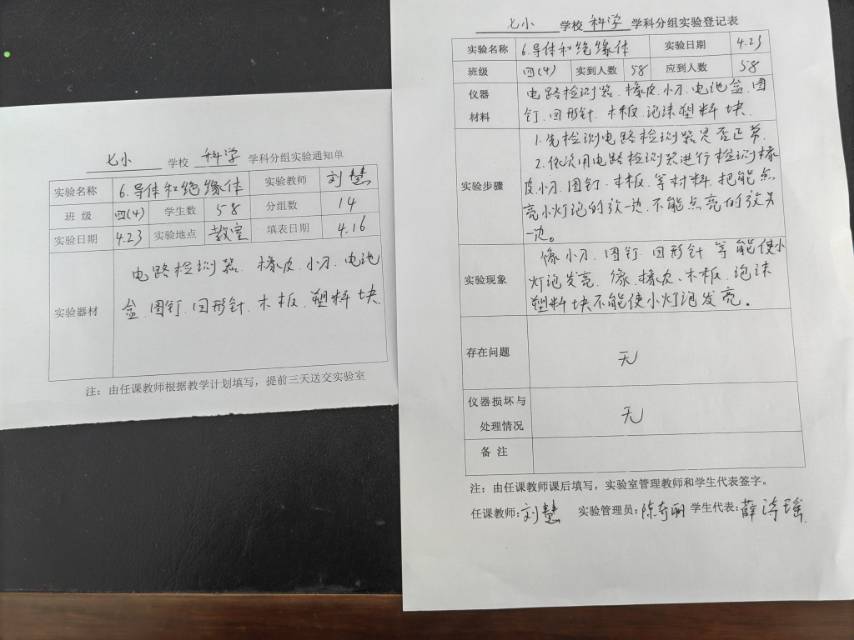 七小 学校 科学 学科分组实验通知单
实验名称 6.导体和绝缘体 实验教师 刘慧
班 级 四(4) 学生数 58 分组数 14
实验日期 4.23 实验地点 教室 填表日期 4.16
实验器材
电路检测器.橡皮.小刀.电池
盒.图钉.回形针.木板.塑料块
注：由任课教师根据教学计划填写，提前三天送交实验室
七小 学校 科学 学科分组实验登记表
实验名称 6.导体和绝缘体 实验日期 4.23
班级 四(4) 实到人数 58 应到人数 58
仪器材料
电路检测器.橡皮.小刀.电池盒.图
钉.回形针.木板.泡沫塑料块
实验步骤
1.先检测电路检测器是否正常.
2.依次用电路检测器进行检测橡
皮.小刀.图钉.木板.等材料,把能点
亮小灯泡的放一边,不能点亮的放另
一边。
实验现象
像小刀.图钉.回形针等能使小
灯泡发亮.像.橡皮、木板、泡沫
塑料块不能使小灯泡发亮。
存在问题 无
仪器损坏与
处理情况 无
备 注
注：由任课教师课后填写，实验室管理教师和学生代表签字。
任课教师:刘慧 实验管理员: 学生代表:薛